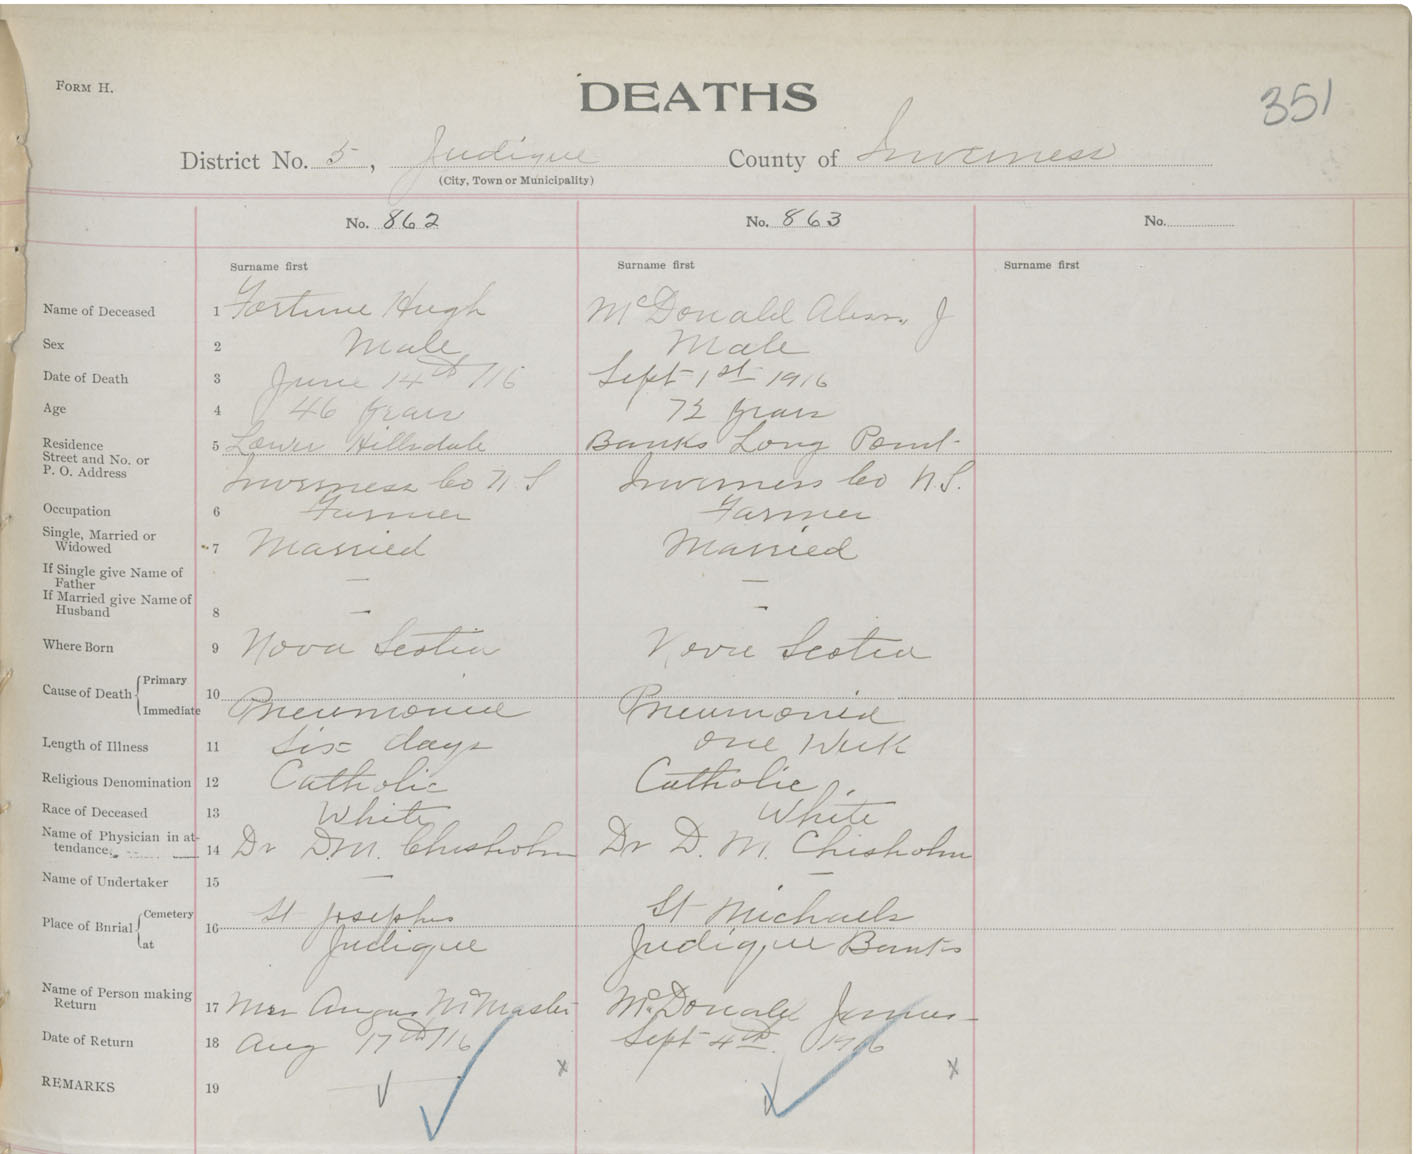 FORM H.
DEATHS
351
District No. 5, Judique County of Inverness
(City, Town or Municipality)
No. 862 No. 863 No.
Surname first Surname first Surname first
Name of Deceased 1 Fortune Hugh McDonald Alexr. J
Sex 2 Male Male
Date of Death 3 June 14th 1916 Sept 1st 1916
Age 4 46 years 72 years
Residence 5 Lower Hillsdale Banks Long Point
Street and No. or
P. O. Address Inverness Co N S Inverness Co N.S.
Occupation 6 Farmer Farmer
Single, Married or
Widowed 7 Married Married
If Single give Name of
Father — —
If Married give Name of
Husband 8 — —
Where Born 9 Nova Scotia Nova Scotia
Cause of Death Primary 10
Immediate Pneumonia Pneumonia
Length of Illness 11 Six days one Week
Religious Denomination 12 Catholic Catholic
Race of Deceased 13 White White
Name of Physician in at-
tendance 14 Dr D.M. Chisholm Dr D. M. Chisholm
Name of Undertaker 15 — —
Place of Burial Cemetery 16 St Josephs St Michaels
at Judique Judique Banks
Name of Person making
Return 17 Mrs Angus McMaster McDonald James
Date of Return 18 Aug 17th 1916 Sept 4th 1916
REMARKS 19
x x